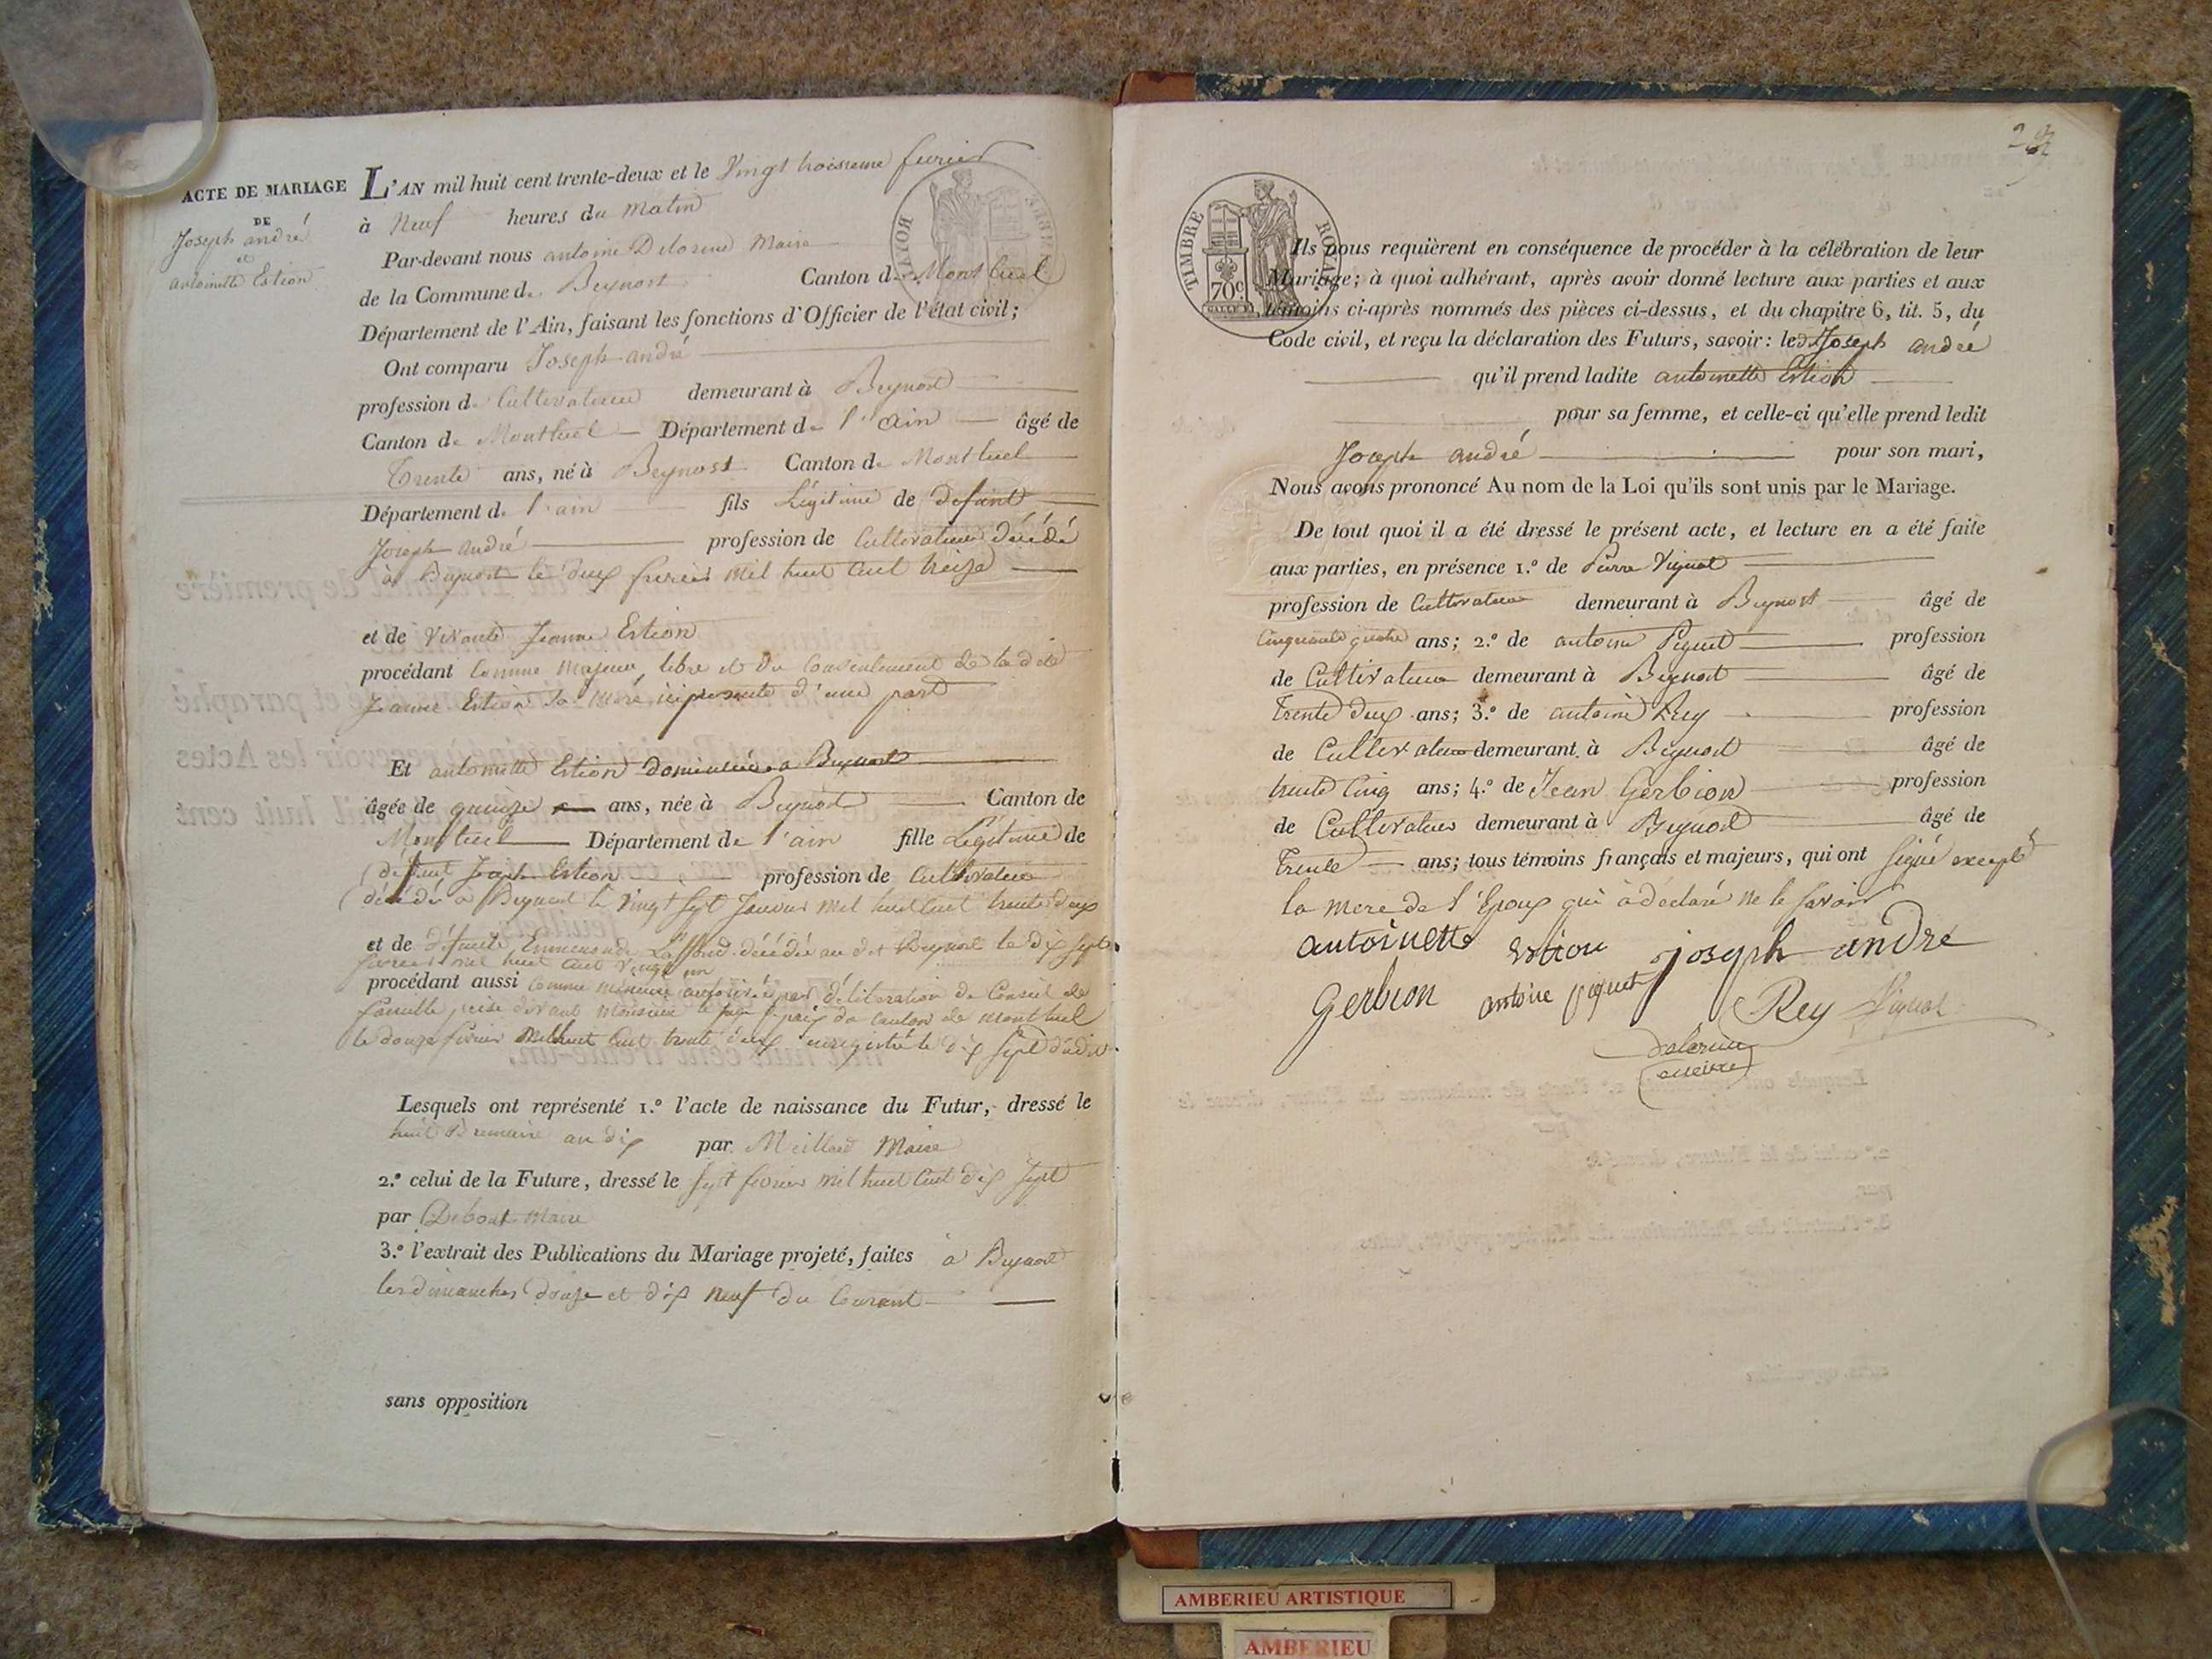 ACTE DE MARIAGE
DE
Joseph andré
et
antoinette Estion
L'AN mil huit cent trente-deux et le Vingt troisieme fevrier
à Neuf heures du Matin
Par-devant nous antoine Delorme Maire
de la Commune de Beynost Canton de Montluel
Département de l'Ain, faisant les fonctions d'Officier de l'état civil;
Ont comparu Joseph andré
profession de Cultivateur demeurant à Beynost
Canton de Montluel Département de l'ain âgé de
Trente ans, né à Beynost Canton de Montluel
Département de l'ain fils Légitime de defunt
Joseph andré profession de Cultivateur décédé
à Beynost le deux fevrier mil huit Cent treize
et de vivante Jeanne Estion
procédant Comme majeur, libre et du Consentement de la dite
Jeanne Estion sa mere ici presente d'une part
Et antoinette Estion domiciliée a Beynost
âgée de quinze ans, née à Beynost Canton de
Montluel Département de l'ain fille Légitime de
défunt Joseph Estion profession de Cultivateur
décédé a Beynost le Vingt sept Janvier mil huit Cent trente deux
et de défunte décédée au dit Beynost le dix sept
fevrier mil huit Cent Vingt un
procédant aussi Comme mineure autorisée par déliberation du Conseil de
famille prise devant Monsieur le juge de paix du Canton de Montluel
le douze fevrier Mil huit Cent trente deux enregistré le dix sept dudit
Lesquels ont représenté 1.º l'acte de naissance du Futur, dressé le
huit Brumaire an dix par Maire
2.º celui de la Future, dressé le sept fevrier mil huit Cent dix sept
par Debost Maire
3.º l'extrait des Publications du Mariage projeté, faites à Beynost
les dimanches douze et dix neuf du Courant
sans opposition
TIMBRE ROYAL
70c
Ils nous requièrent en conséquence de procéder à la célébration de leur
Mariage; à quoi adhérant, après avoir donné lecture aux parties et aux
témoins ci-après nommés des pièces ci-dessus, et du chapitre 6, tit. 5, du
Code civil, et reçu la déclaration des Futurs, savoir: ledit Joseph andré
qu'il prend ladite antoinette Estion
pour sa femme, et celle-ci qu'elle prend ledit
Joseph andré pour son mari,
Nous avons prononcé Au nom de la Loi qu'ils sont unis par le Mariage.
De tout quoi il a été dressé le présent acte, et lecture en a été faite
aux parties, en présence 1.º de Pierre Vignat
profession de Cultivateur demeurant à Beynost âgé de
Cinquante quatre ans; 2.º de antoine Piquet profession
de Cultivateur demeurant à Beynost âgé de
Trente deux ans; 3.º de antoine Rey profession
de Cultivateur demeurant à Beynost âgé de
trente Cinq ans; 4.º de Jean Gerbion profession
de Cultivateur demeurant à Beynost âgé de
Trente ans; tous témoins français et majeurs, qui ont signé excepté
la mere de l'Epoux qui à déclaré ne le savoir
antoinette estion joseph andre
Gerbion antoine piquet Rey Vignat
delorme
maire
AMBERIEU ARTISTIQUE
AMBERIEU